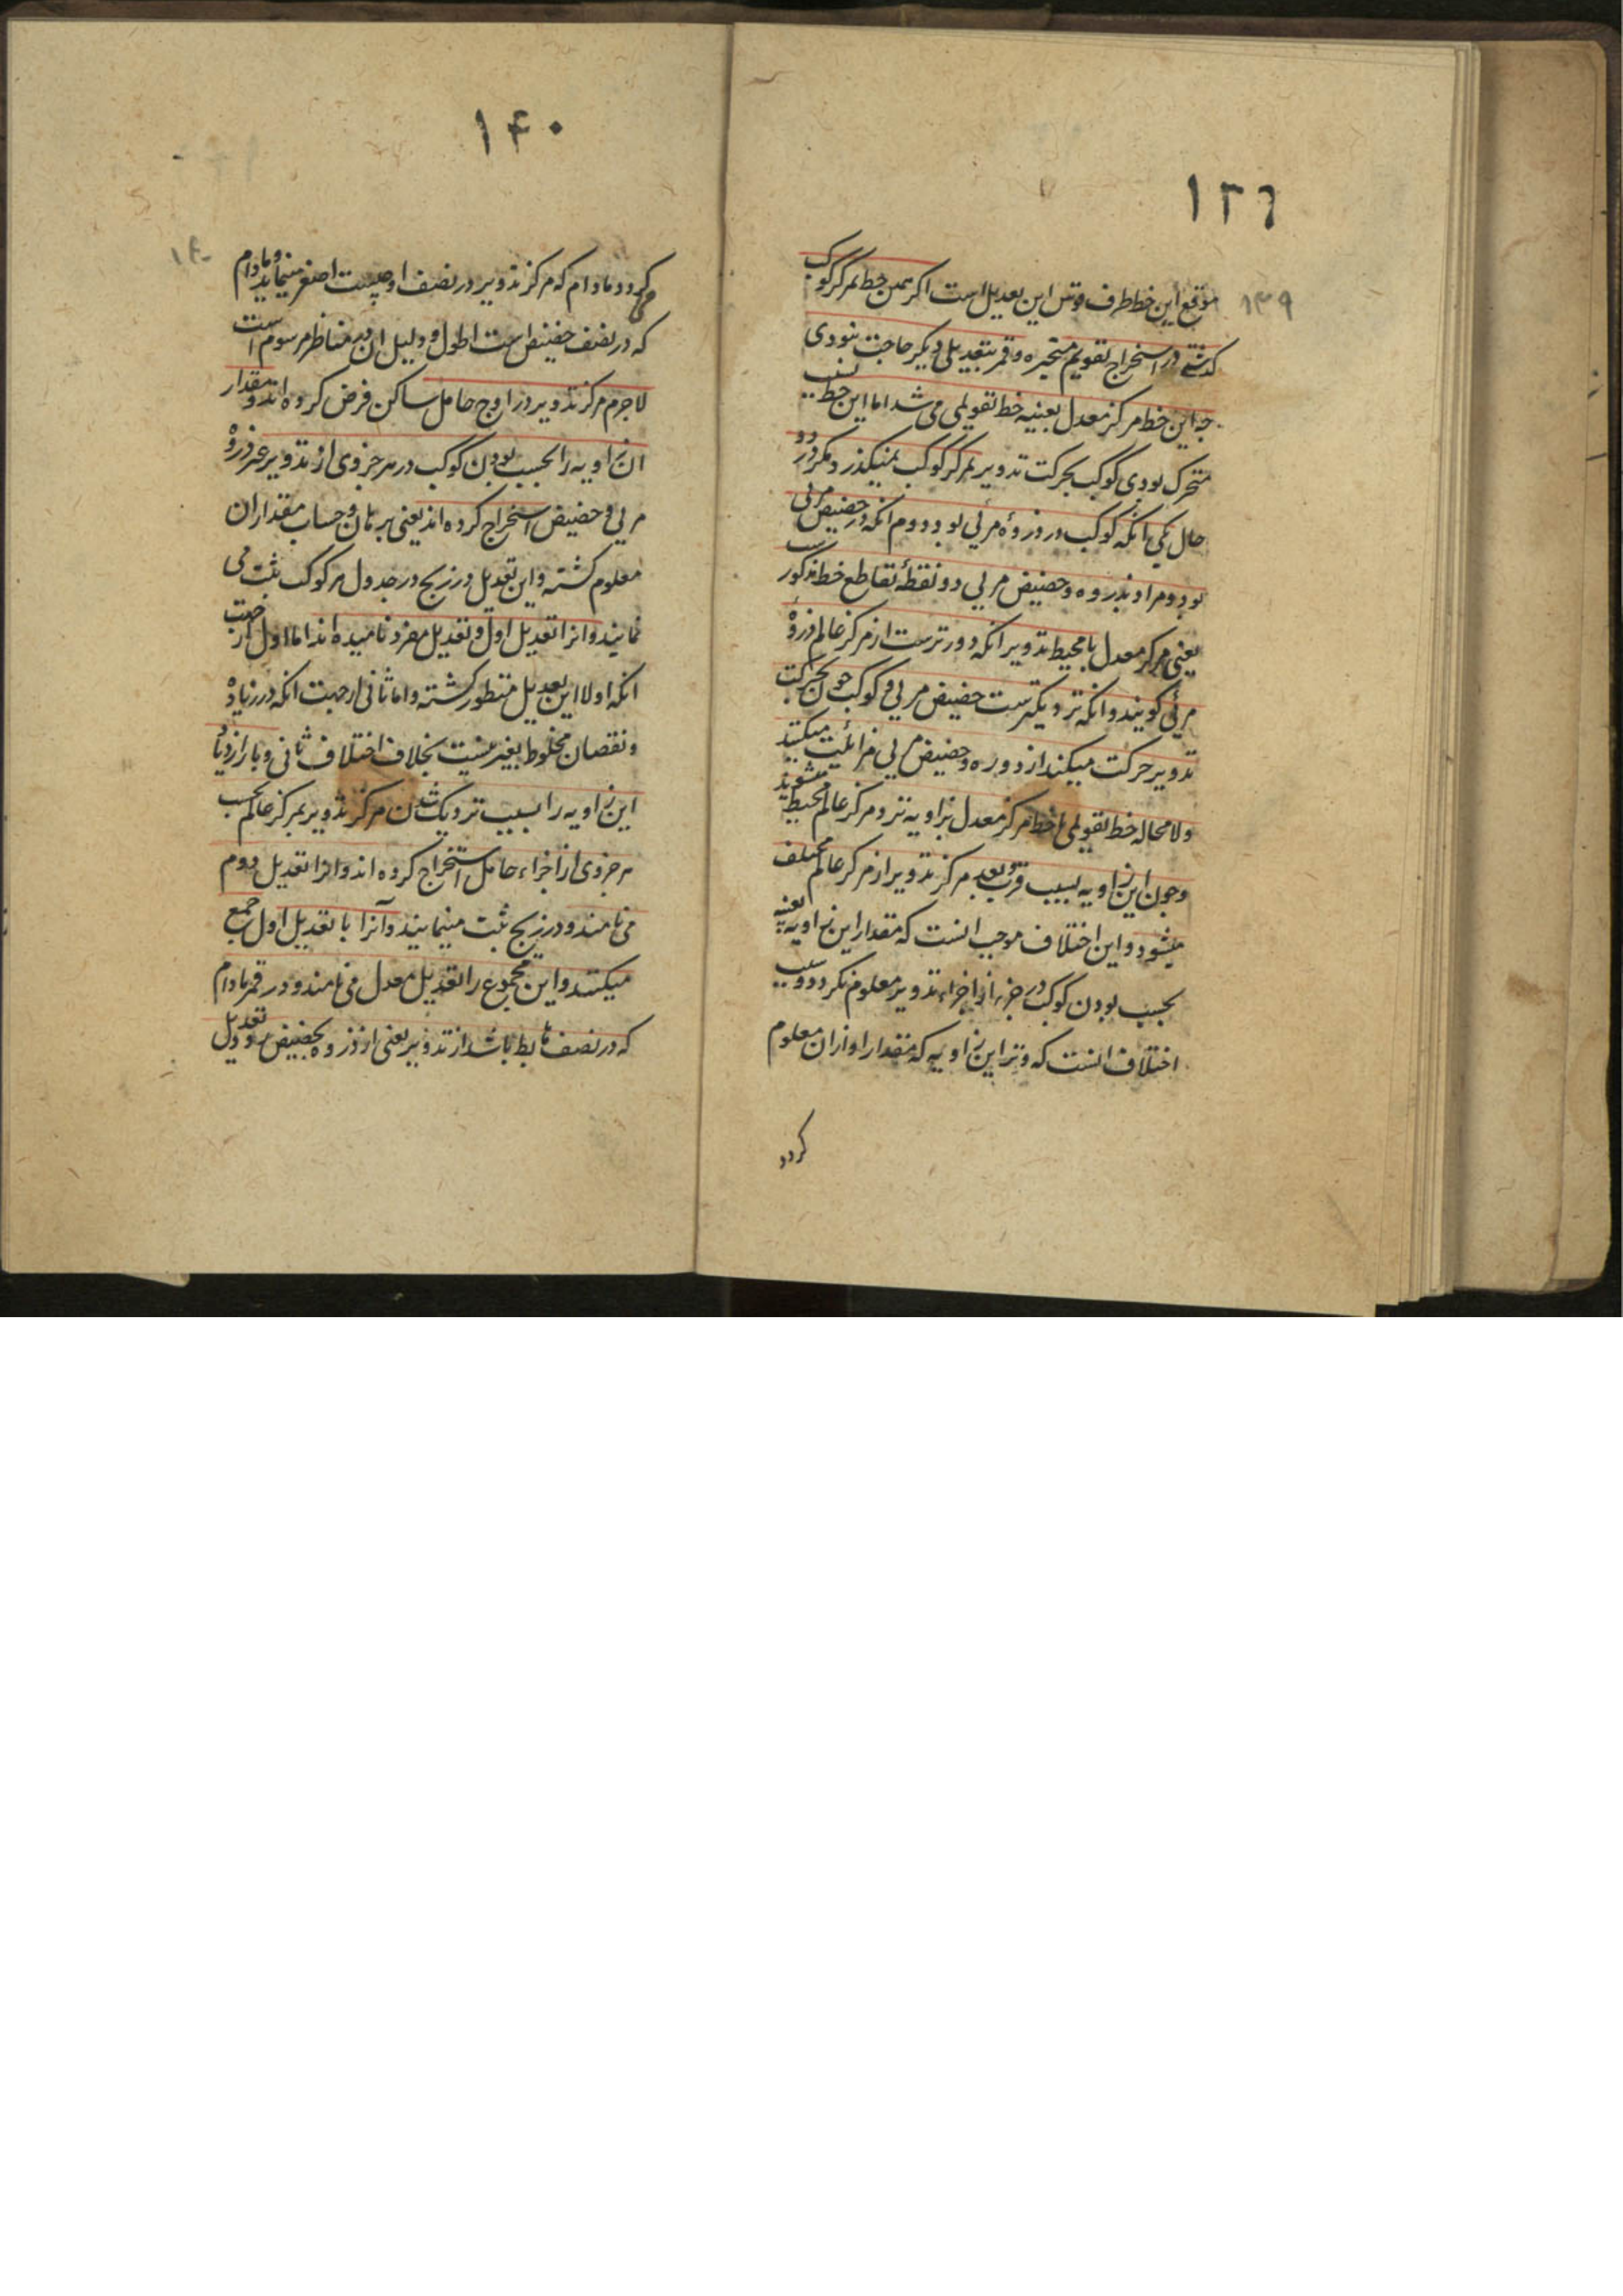 ۱۳۹
۱۳۹
موقع این خط طرف قوس این تعدیل است اکر همین خط بمرکز کوکب
کذشتی در استخراج تقویم متحیره و قمر بتعدیلی دیکر حاجت نبودی
چه این خط مرکز معدل بعینه خط تقویمی می شد اما این خط بسبب
متحرک بودن کوکب بحرکت تدویر بمرکز کوکب نمیکذرد مکر در دو
حال یکی انکه کوکب در ذروهٔ مرئی بود دوم انکه در حضیض مرئی
بود و مراد بذروه و حضیض مرئی دو نقطهٔ تقاطع خط مذکور است
یعنی مرکز معدل با محیط تدویر انکه دورترست از مرکز عالم ذروهٔ
مرئی کویند و انکه نزدیکترست حضیض مرئی و کوکب چون بحرکت
تدویر حرکت میکند از ذروه و حضیض مرئی مزائلت میکند
ولا محاله خط تقویمی با خط مرکز معدل بزاویه نزد مرکز عالم محیط میشوند
و چون این زاویه بسبب قرب و بعد مرکز تدویر از مرکز عالم مختلف
میشود و این اختلاف موجب انست که مقدار این زاویه بعینه
بحسب بودن کوکب در جزء از اجزاء تدویر معلوم نکردد و سبب
اختلاف انست که وتر این زاویه که مقدار او ازان معلوم
کردد
۱۴۰
۱۴۰
میکردد مادام که مرکز تدویر در نصف اوجیست اصغر مینماید و مادام
که در نصف حضیض است اطول و دلیل ان در مناظر مرسوم است
لاجرم مرکز تدویر در اوج حامل ساکن فرض کرده اند و مقدار
ان زاویه را بحسب بودن کوکب در هر جزوی از تدویر غیر ذروهٔ
مرئی و حضیض استخراج کرده اند یعنی ببرهان و حساب مقدار ان
معلوم کشته و این تعدیل در زیج در جدول هر کوکب ثبت می
نمایند و انرا تعدیل اول و تعدیل مفرد نامیده اند اما اول از جهت
انکه اولا این تعدیل منظور کشته و اما ثانی ازجهت انکه در زیادهٔ
و نقصان مخلوط بغیر نیست بخلاف اختلاف ثانی و باز ازدیاد
این زاویه را بسبب نزدیک شدن مرکز تدویر بمرکز عالم بحسب
هر جزوی از اجزاء حامل استخراج کرده اند و انرا تعدیل دوم
می نامند و در زیج ثبت مینمایند و آنرا با تعدیل اول جمع
میکنند و این مجموع را تعدیل معدل می نامند و در قمر مادام
که در نصف هابط باشد از تدویر یعنی از ذروه بحضیض رود تعدیل